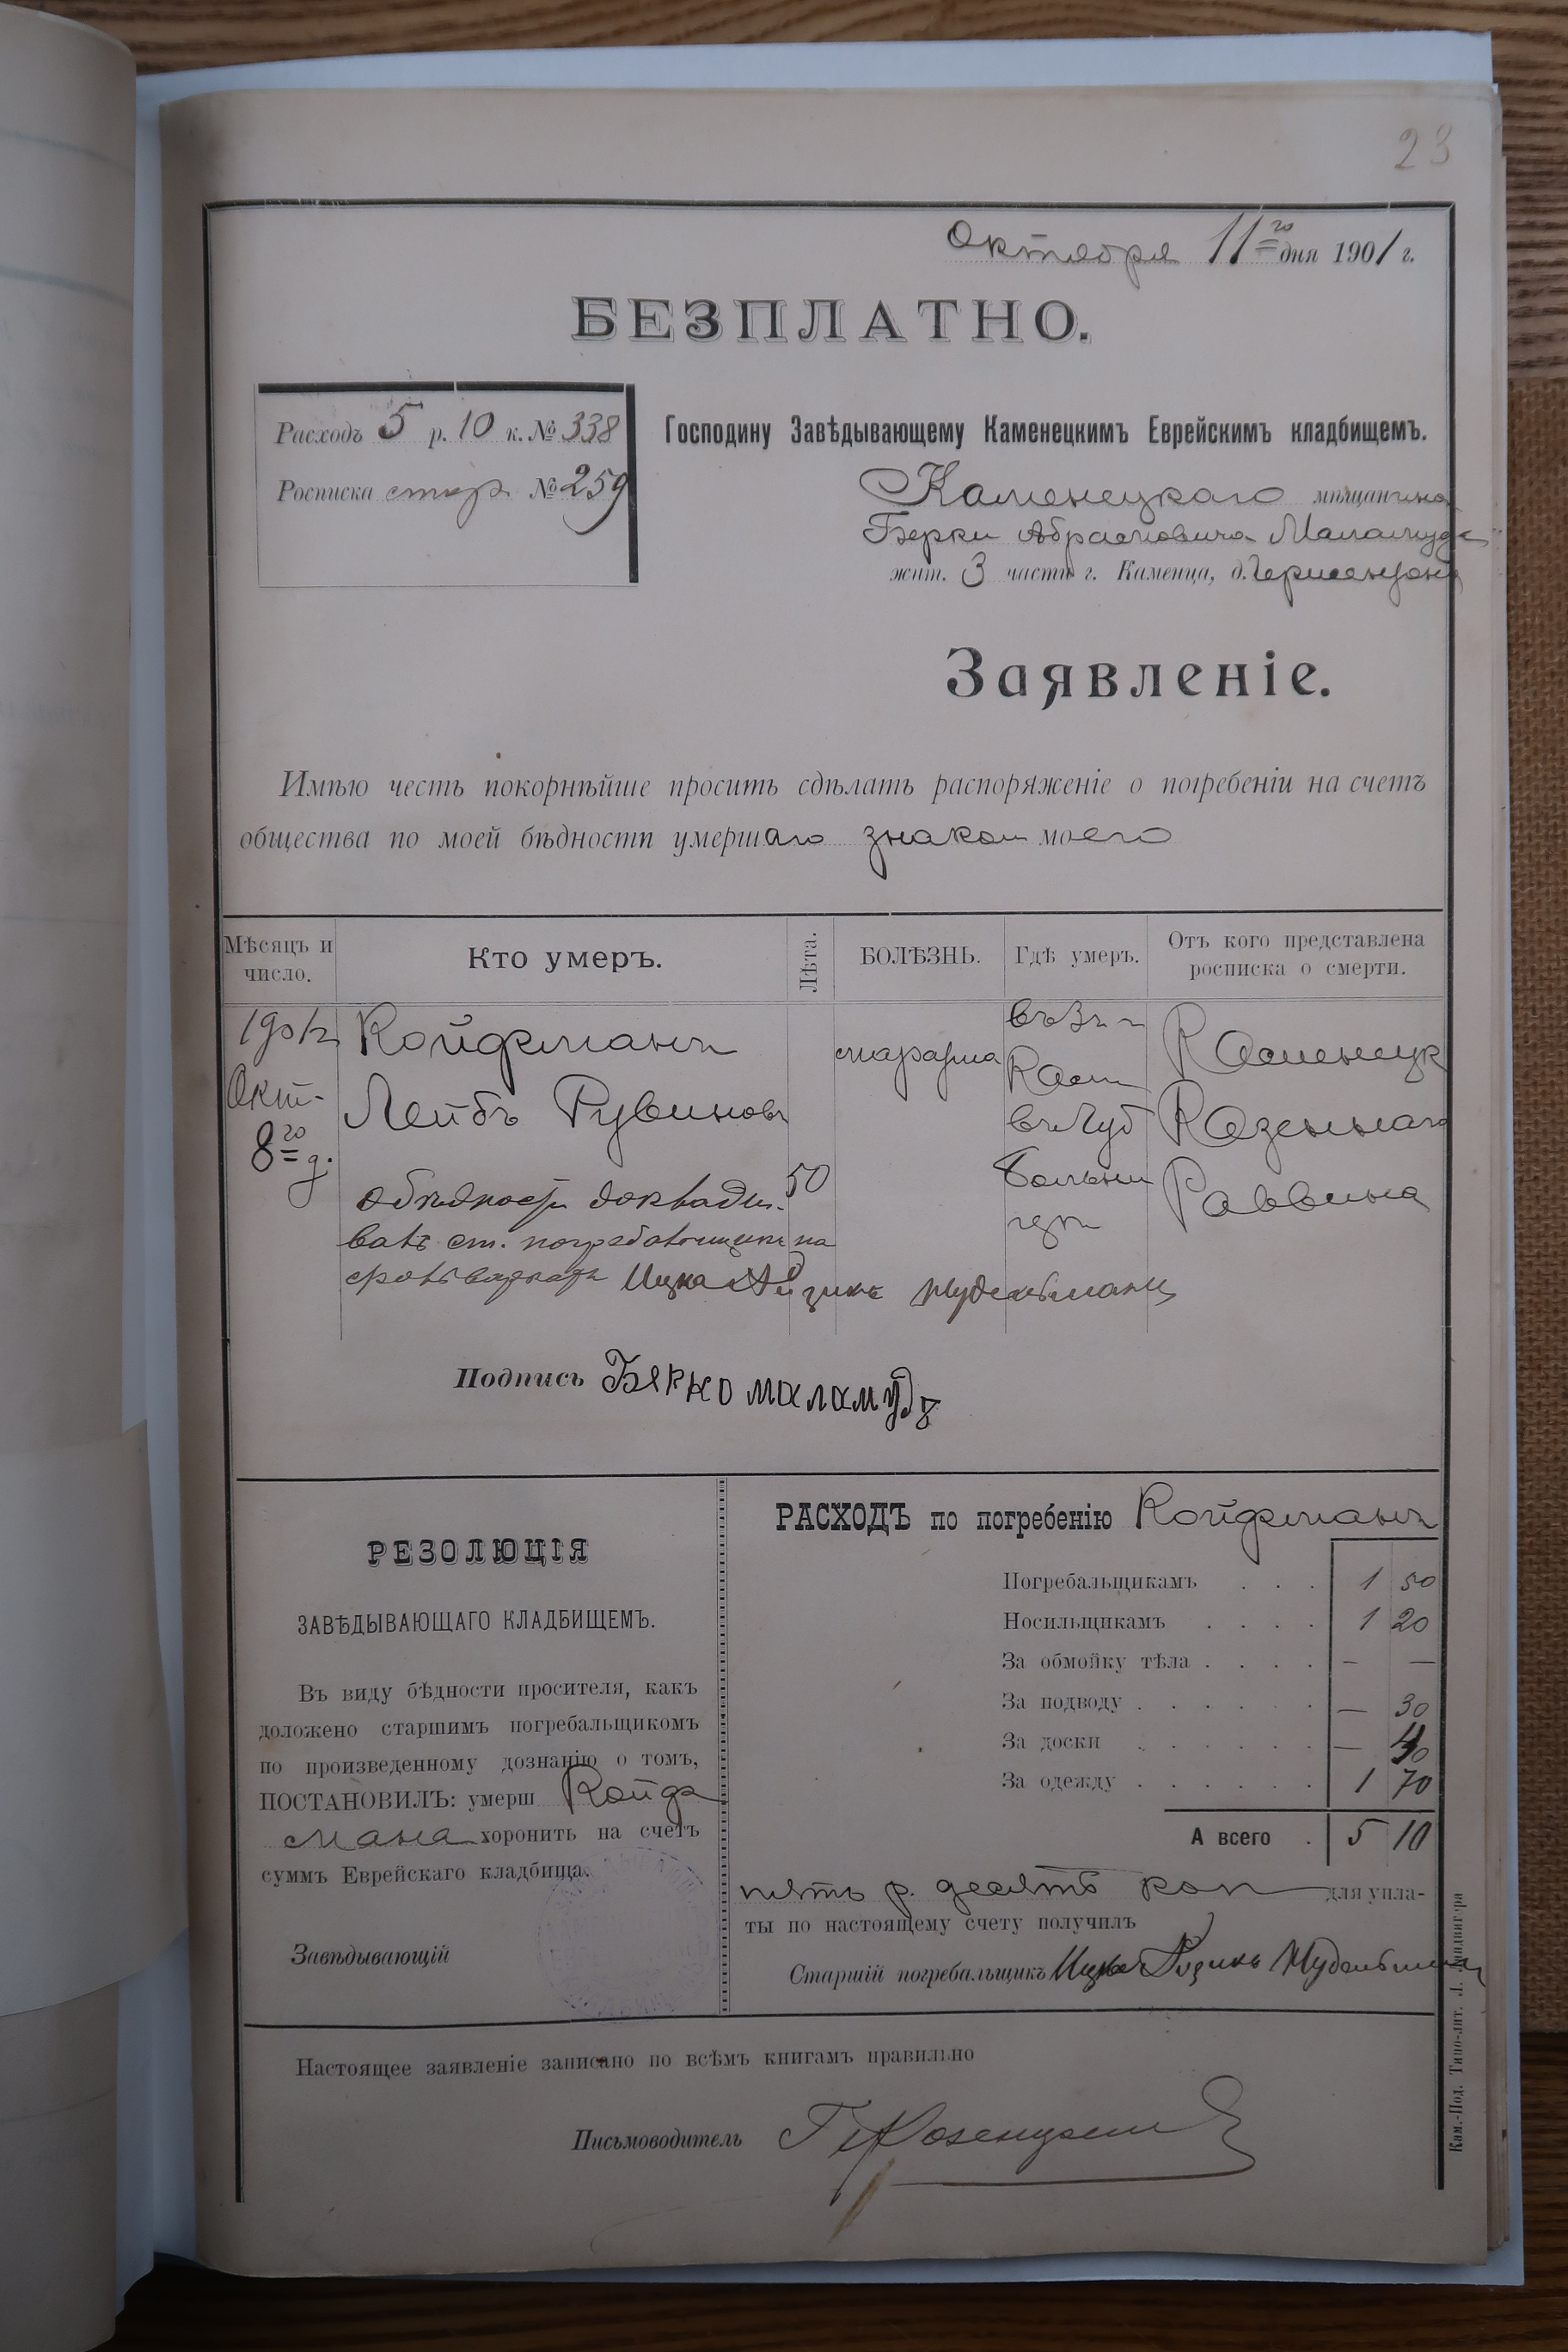 23
Октября 11го дня 1901 г.
БЕЗПЛАТНО.
Расходъ 5 р. 10 к. № 338
Росписка стар. № 259
Господину Завѣдывающему Каменецкимъ Еврейскимъ кладбищемъ.
Каменецкаго мѣщанина
Берки Абрамовича Маламуда
жит. 3 части г. Каменца, д.
Заявленіе.
Имѣю честь покорнѣйше просить сдѣлать распоряженіе о погребеніи на счетъ
общества по моей бѣдности умершаго знаком моего
Мѣсяцъ и число.
Кто умеръ.
Лѣта.
БОЛѢЗНЬ.
Гдѣ умеръ.
Отъ кого представлена росписка о смерти.
Окт.
8го д.
Койфманъ
Лейбъ Рувиновъ
50
маразма
Кам
въ Губ
больни
цѣ
Каменецк
Казеннаго
Раввина
ст.
Ицко Нудельманъ
Подпись Берко маламудъ
РЕЗОЛЮЦІЯ
ЗАВѢДЫВАЮЩАГО КЛАДБИЩЕМЪ.
Въ виду бѣдности просителя, какъ
доложено старшимъ погребальщикомъ
по произведенному дознанію о томъ,
ПОСТАНОВИЛЪ: умерш Койф
мана хоронить на счетъ
суммъ Еврейскаго кладбища.
Завѣдывающій
РАСХОДЪ по погребенію Койфманъ
Погребальщикамъ . . . 1 50
Носильщикамъ . . . . 1 20
За обмойку тѣла . . . . — —
За подводу . . . . . — 30
За доски . . . . . . — 40
За одежду . . . . . . 1 70
А всего . 5 10
пять р. десять коп для упла-
ты по настоящему счету получилъ
Старшій погребальщикъ Ицко Нудельман
Настоящее заявленіе записано по всѣмъ книгамъ правильно
Письмоводитель
Кам.-Под. Типо-лит. Л.